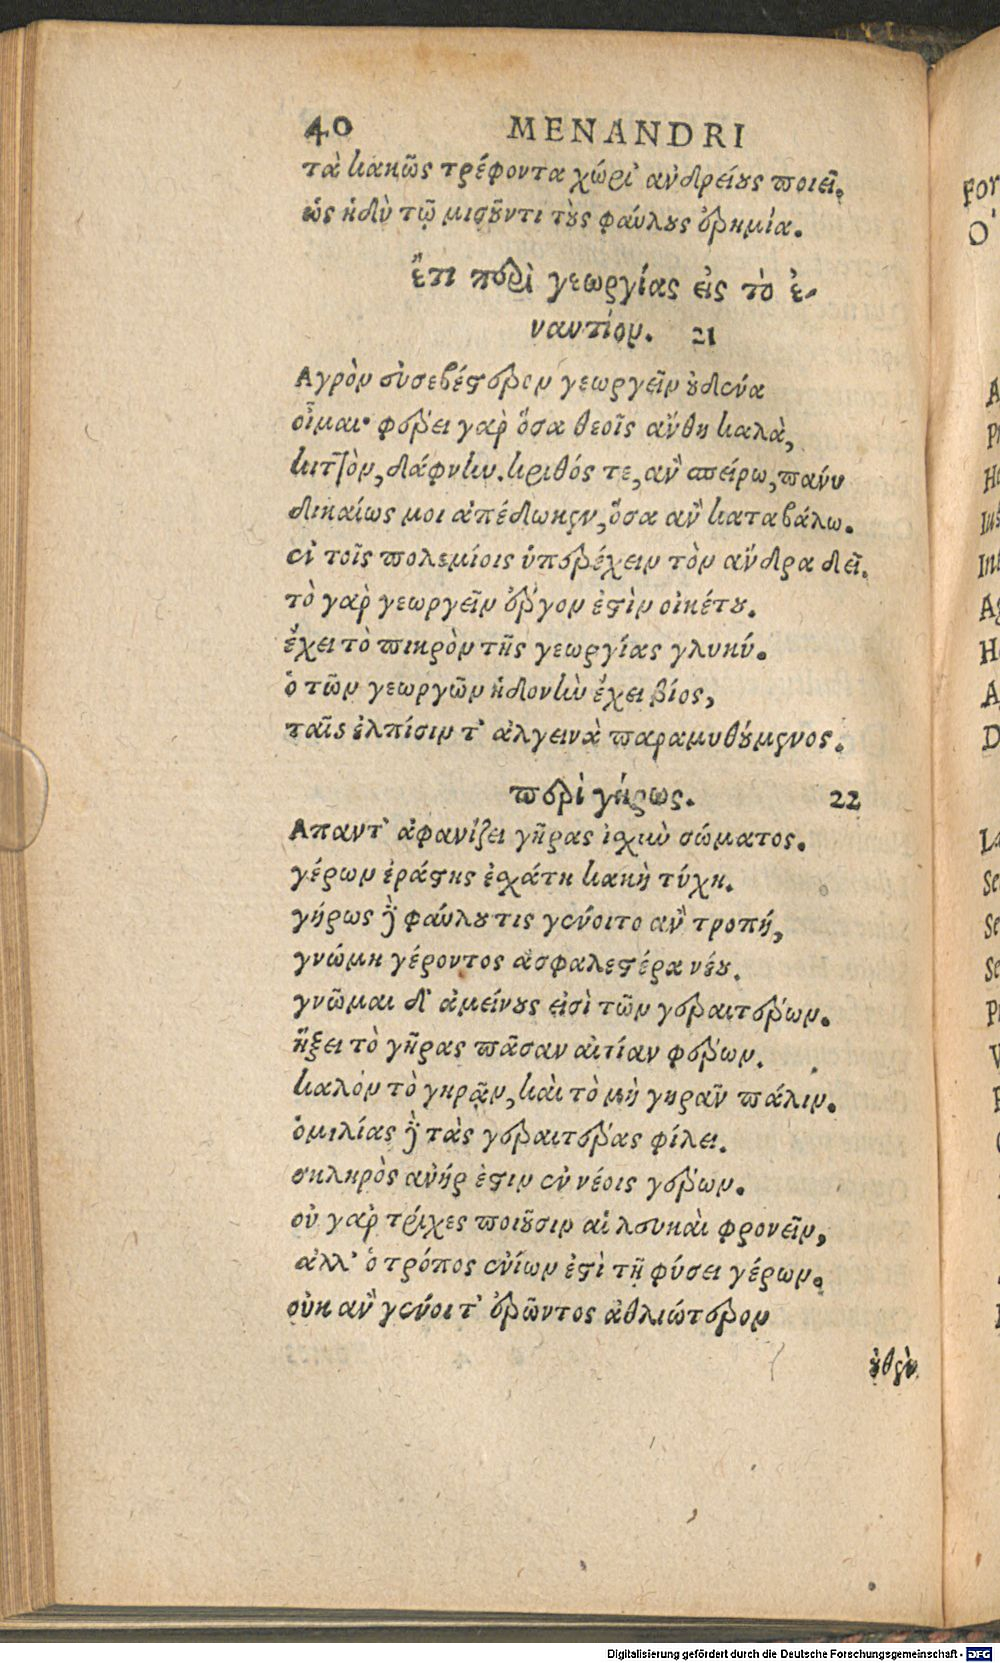 40 MENANDRI
τὰ κακῶς τρέφοντα χώρι' ἀνδρείους ποιεῖ.
ὡς ἡδὺ τῷ μισοῦντι τοὺς φαύλους ἐρημία.
ἔτι περὶ γεωργίας εἰς τὸ ἐ-
ναντίον. 21
Αγρὸν εὐσεβέστερον γεωργεῖν οὐδένα
οἶμαι· φέρει γὰρ ὅσα θεοῖς ἄνθη καλὰ,
κιττὸν, δάφνην. κριθάς τε, ἂν σπείρω, πάνυ
δικαίως μοι ἀπέδωκεν, ὅσα ἂν καταβάλω.
ἐν τοῖς πολεμίοις ὑπερέχειν τὸν ἄνδρα δεῖ.
τὸ γὰρ γεωργεῖν ἔργον ἐστὶν οἰκέτου.
ἔχει τὸ πικρὸν τῆς γεωργίας γλυκύ.
ὁ τῶν γεωργῶν ἡδονὴν ἔχει βίος,
ταῖς ἐλπίσιν τ' ἀλγεινὰ παραμυθούμενος.
περὶ γήρως. 22
Απαντ' ἀφανίζει γῆρας ἰσχὺν σώματος.
γέρων ἐραστὴς ἐσχάτη κακὴ τύχη.
γήρως δὲ φαύλου τις γένοιτο ἂν τροπή,
γνώμη γέροντος ἀσφαλεστέρα νέου.
γνῶμαι δ' ἀμείνους εἰσὶ τῶν γεραιτέρων.
ἥξει τὸ γῆρας πᾶσαν αἰτίαν φέρων.
καλόν τὸ γηρᾷν, καὶ τὸ μὴ γηρᾷν πάλιν.
ὁμιλίας δὲ τὰς γεραιτέρας φίλει.
σκληρὸς ἀνήρ ἐστιν ἐν νέοις γέρων.
οὐ γὰρ τρίχες ποιοῦσιν αἱ λευκαὶ φρονεῖν,
ἀλλ' ὁ τρόπος ἐνίων ἐστὶ τῇ φύσει γέρων.
οὐκ ἂν γένοιτ' ἐρῶντος ἀθλιώτερον
οὐθὲν
Digitalisierung gefördert durch die Deutsche Forschungsgemeinschaft - DFG